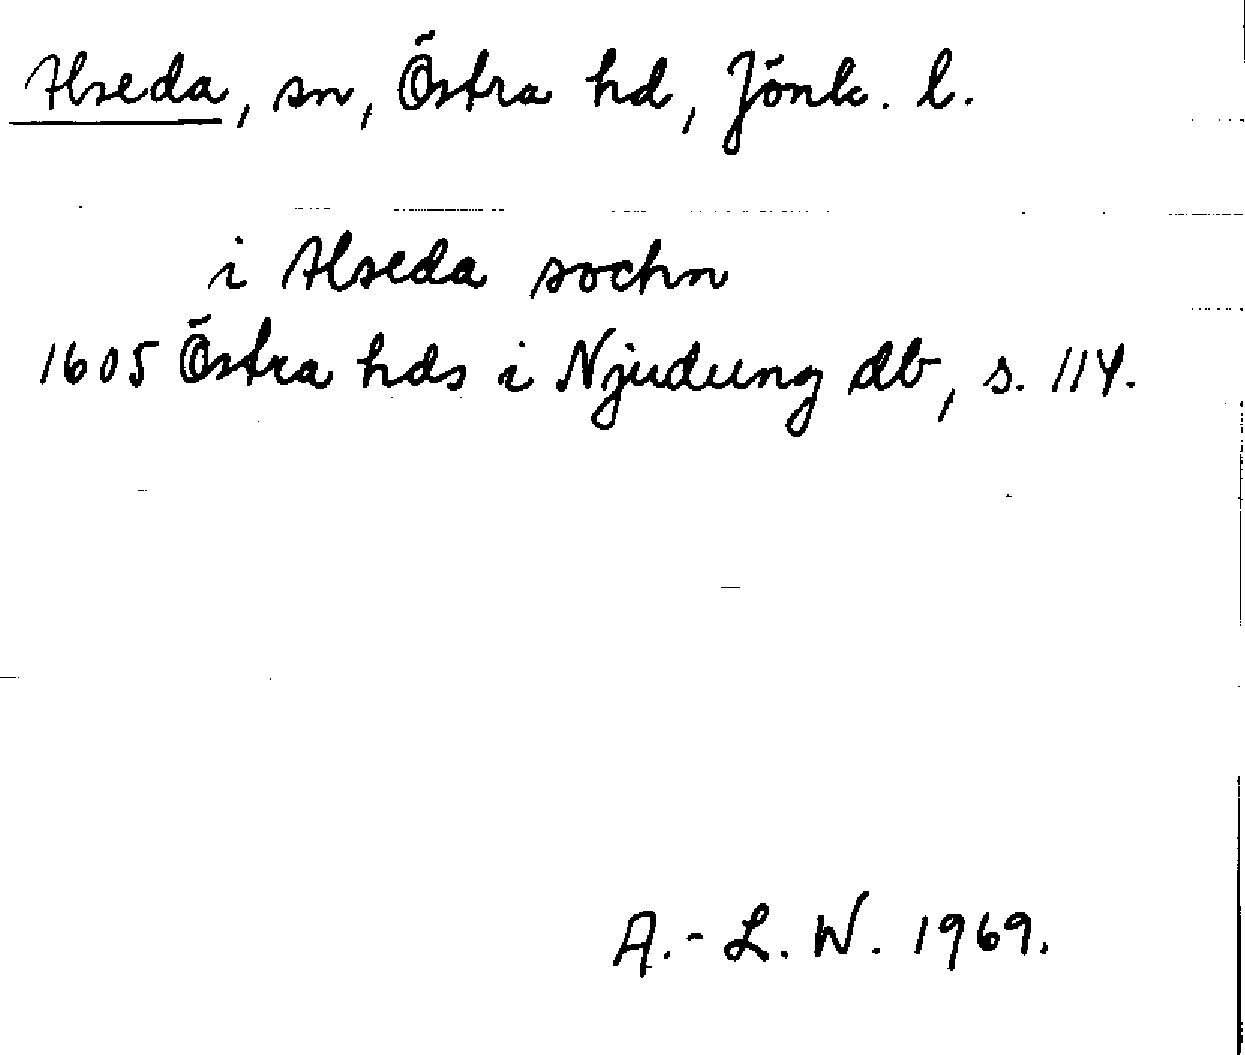 Alseda, sn, Östra hd, Jönk. l.
i Alseda sochn
1605 Östra hds i Njudung db, s. 114.
A.-L. W. 1969.